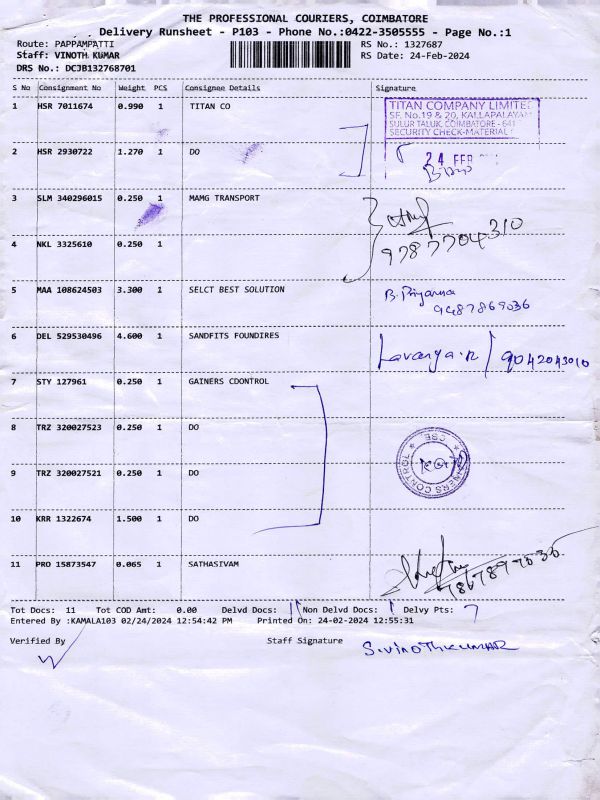 THE PROFESSIONAL COURIERS, COIMBATORE
Delivery Runsheet - P103 - Phone No.:0422-3505555 - Page No.:1
Route: PAPPAMPATTI
Staff: VINOTH KUMAR
DRS No.: DCJB132768701
RS No.: 1327687
RS Date: 24-Feb-2024
S No Consignment No Weight PCS Consignee Details Signature
1 HSR 7011674 0.990 1 TITAN CO
TITAN COMPANY LIMITED
SF. No.19 & 20, KALLAPALAYAM
SULUR TALUK, COIMBATORE - 641
SECURITY CHECK-MATERIAL
2 HSR 2930722 1.270 1 DO
24 FEB
3 SLM 340296015 0.250 1 MAMG TRANSPORT
9787704310
4 NKL 3325610 0.250 1
5 MAA 108624503 3.300 1 SELCT BEST SOLUTION
B. Priyanka
9487869036
6 DEL 529530496 4.600 1 SANDFITS FOUNDIRES
Lavanya.n / 9042043010
7 STY 127961 0.250 1 GAINERS CDONTROL
8 TRZ 320027523 0.250 1 DO
9 TRZ 320027521 0.250 1 DO
10 KRR 1322674 1.500 1 DO
11 PRO 15873547 0.065 1 SATHASIVAM
Tot Docs: 11 Tot COD Amt: 0.00 Delvd Docs: 11 Non Delvd Docs: Delvy Pts: 7
Entered By :KAMALA103 02/24/2024 12:54:42 PM Printed On: 24-02-2024 12:55:31
Verified By
Staff Signature
S.VINOTHKUMAR